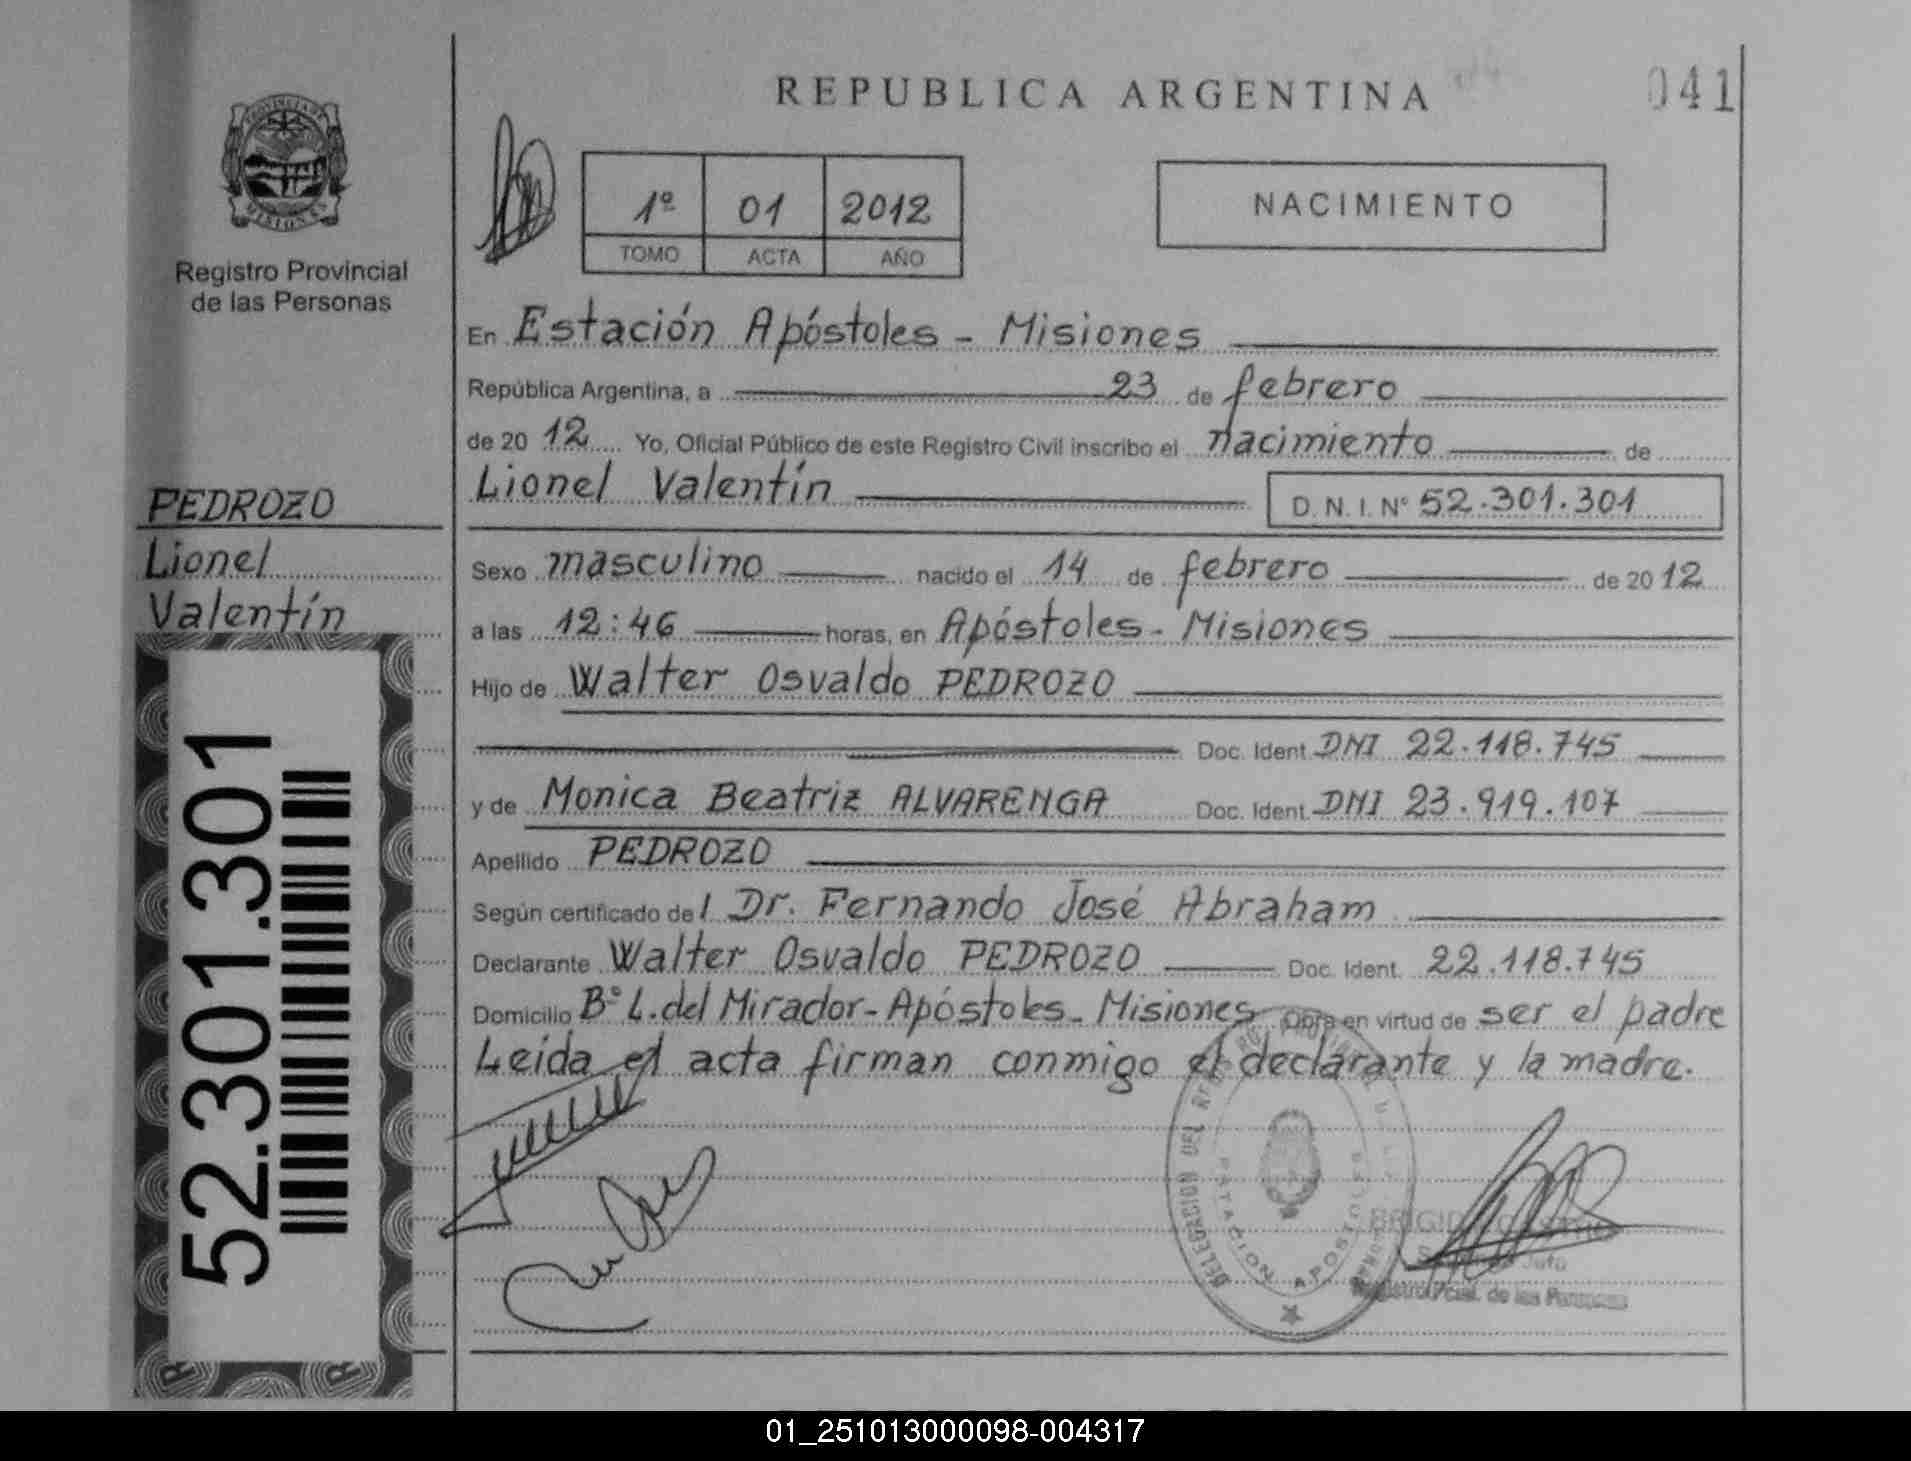 REPUBLICA ARGENTINA
041
PROVINCIA DE
MISIONES
Registro Provincial
de las Personas
1º 01 2012
TOMO ACTA AÑO
NACIMIENTO
En Estación Apóstoles - Misiones
República Argentina, a 23 de febrero
de 20 12 Yo, Oficial Público de este Registro Civil inscribo el nacimiento de
Lionel Valentín D. N. I. Nº 52.301.301
PEDROZO
Lionel
Valentín
52.301.301
Sexo masculino nacido el 14 de febrero de 20 12
a las 12:46 horas, en Apóstoles - Misiones
Hijo de Walter Osvaldo PEDROZO
Doc. Ident. DNI 22.118.745
y de Monica Beatriz ALVARENGA Doc. Ident. DNI 23.919.107
Apellido PEDROZO
Según certificado del Dr. Fernando José Abraham
Declarante Walter Osvaldo PEDROZO Doc. Ident. 22.118.745
Domicilio Bº L. del Mirador - Apóstoles - Misiones Obra en virtud de ser el padre
Leída el acta firman conmigo el declarante y la madre.
DELEGACION DEL
APOSTOLES
Jefa
Registro Pcial. de las Personas
01_251013000098-004317